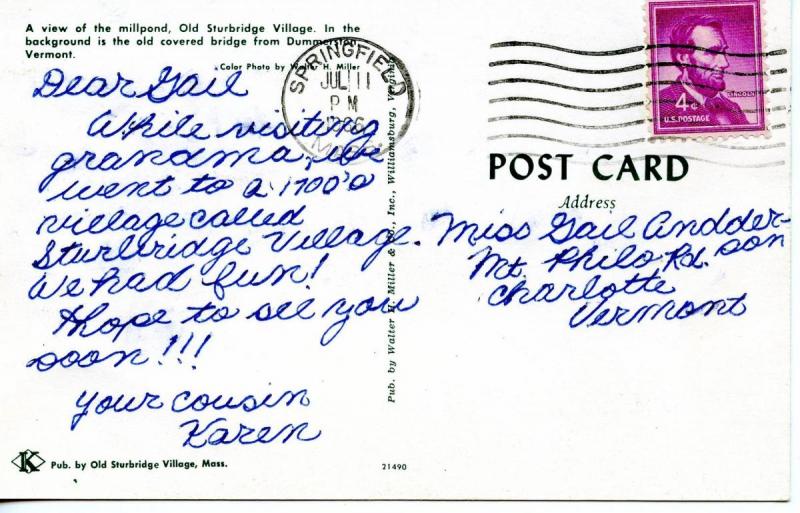 A view of the millpond, Old Sturbridge Village. In the
background is the old covered bridge from Dummerston
Vermont.
Color Photo by Walter H. Miller
Dear Gail
While visiting
grandma, we
went to a 1700's
village called
Sturbridge Village.
We had fun!
I hope to see you
soon!!!
your cousin
Karen
K
Pub. by Old Sturbridge Village, Mass.
21490
Pub. by Walter H. Miller & Co., Inc., Williamsburg, Virginia
SPRINGFIELD
JUL 11
PM
MASS.
4¢
LINCOLN
U.S. POSTAGE
POST CARD
Address
Miss Gail Andder-
son
Mt. Philo Rd.
Charlotte
Vermont